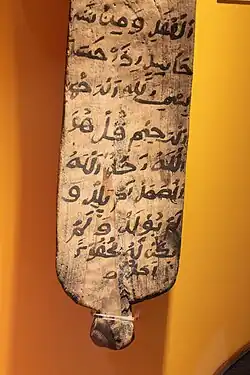 العقد ومن شر
حاسد اذا حسد
بسم الله الرحمن
الرحيم قل هو
الله احد الله
الصمد لم يلد و
لم يولد ولم
يكن له كفؤا
احد